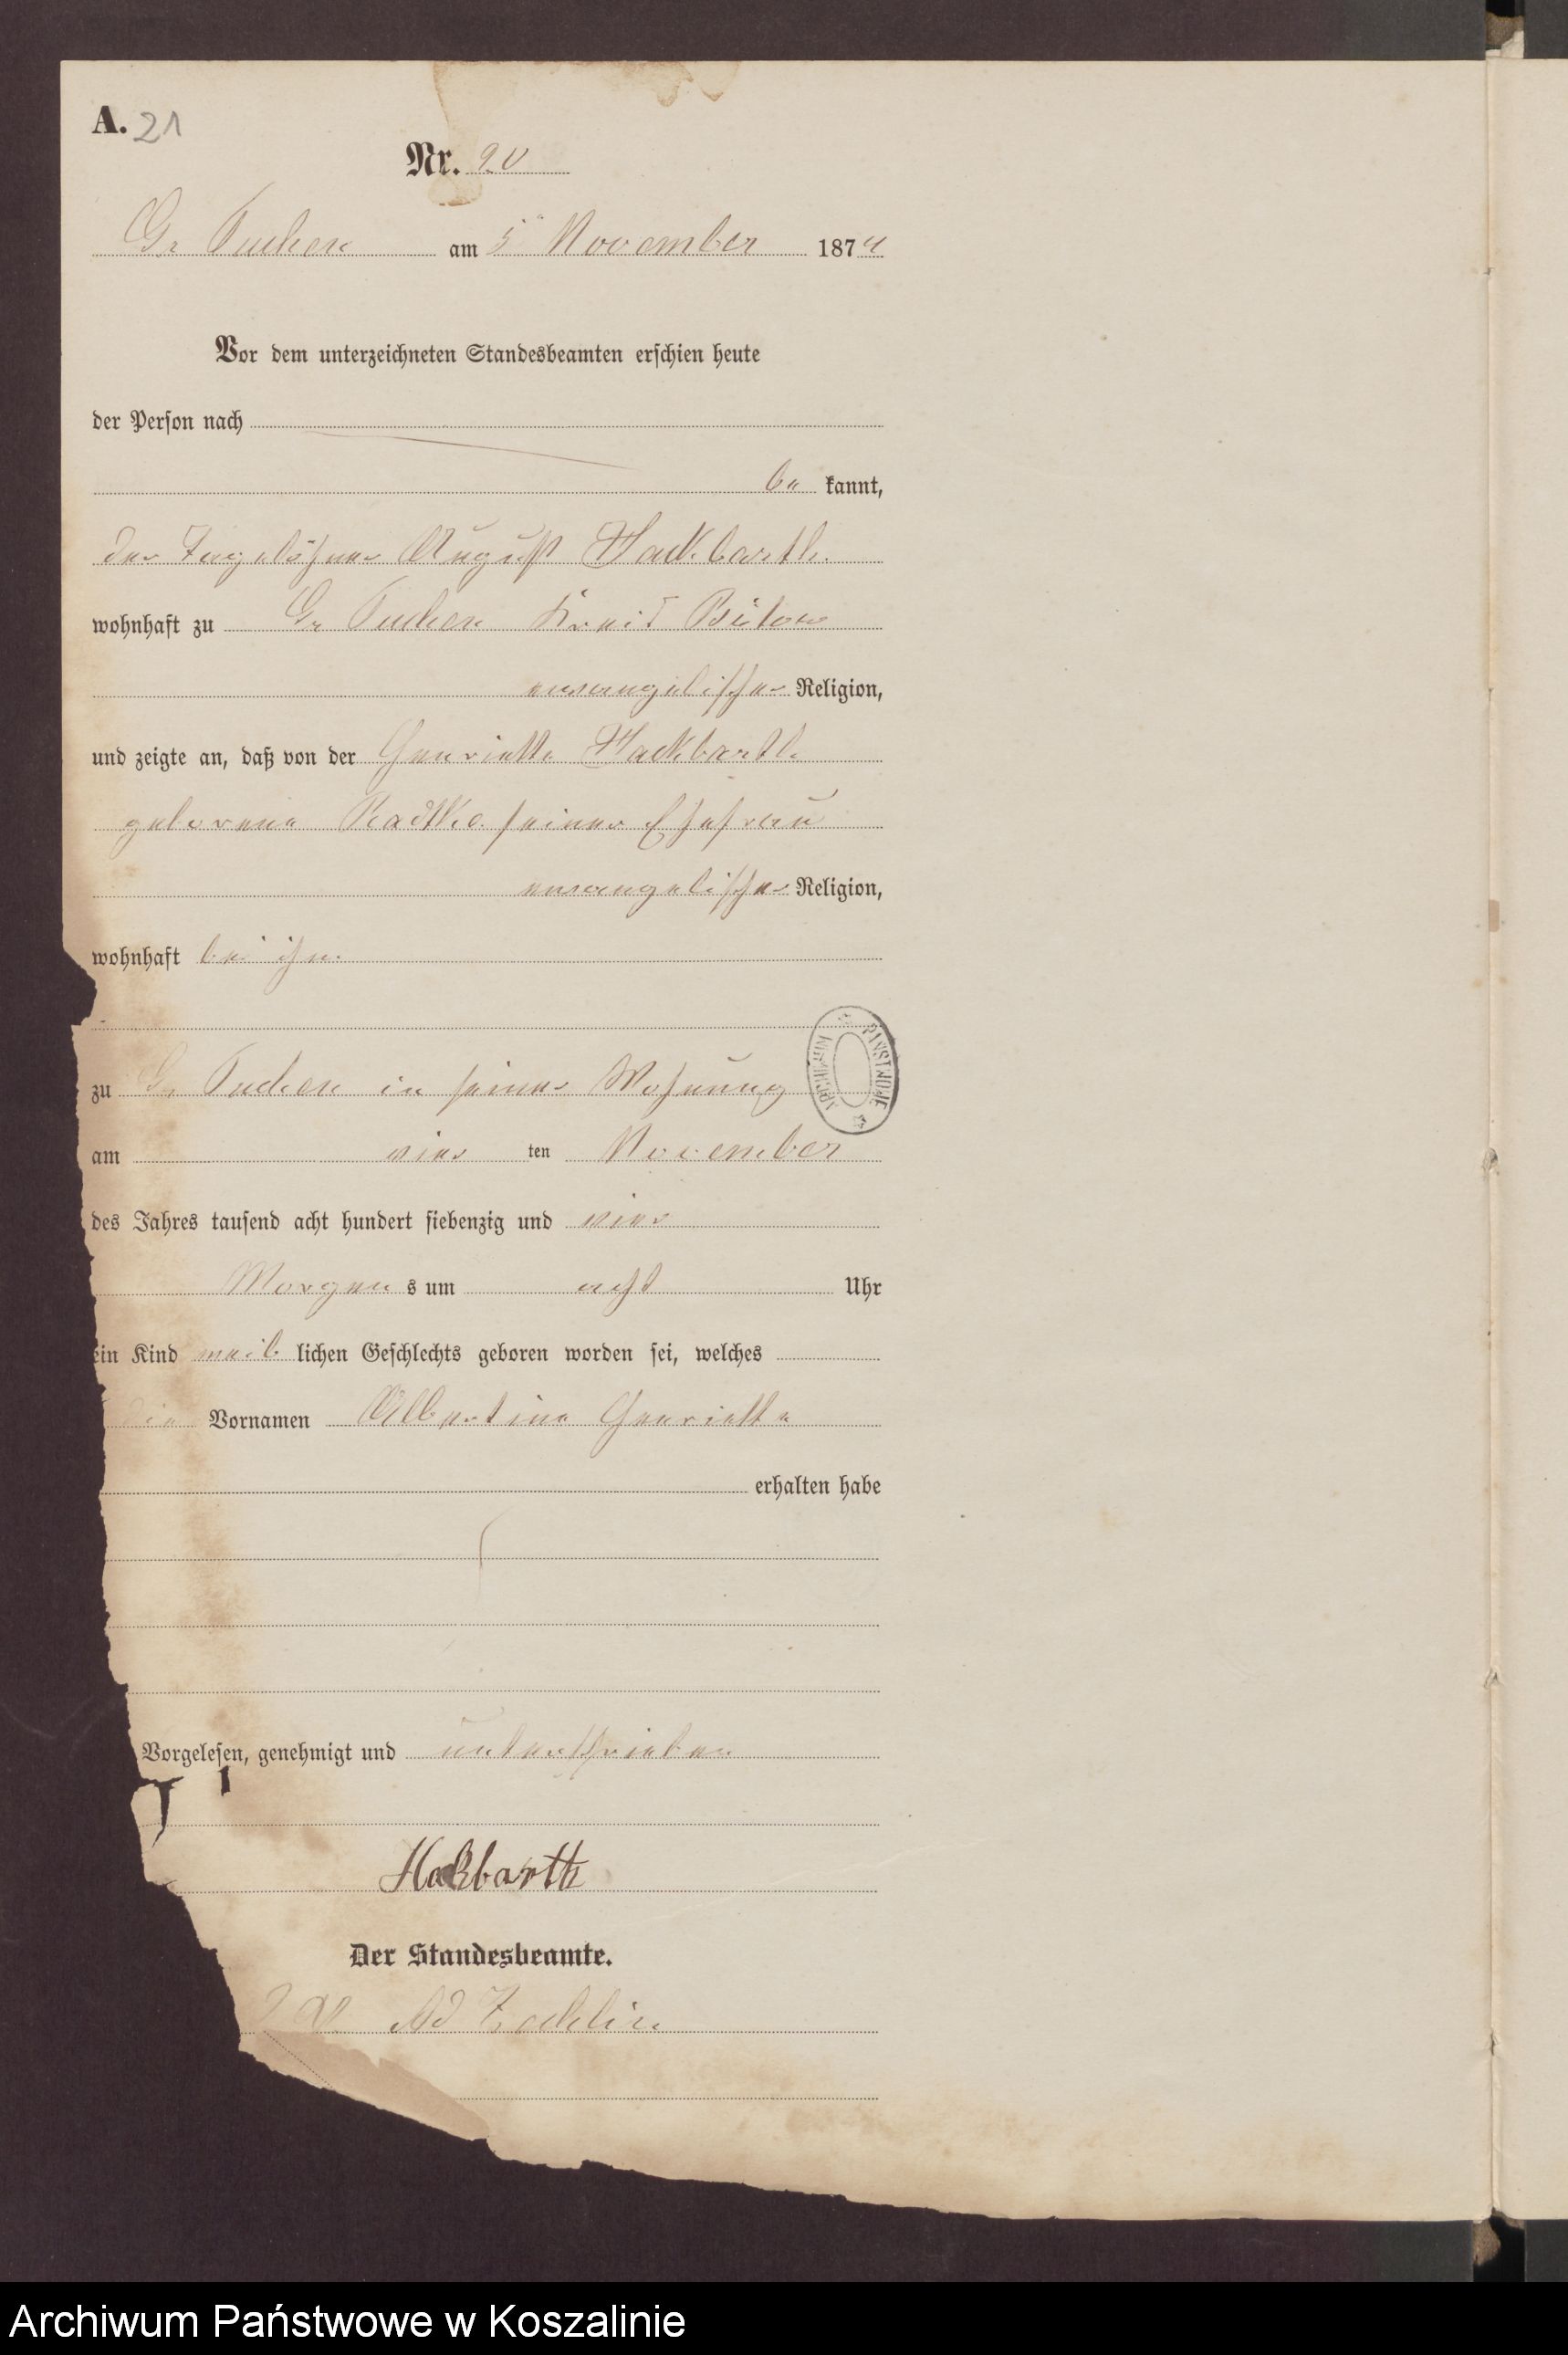 A. 21
Nr. 20
Gr Tuchen am 5ᵗᵉⁿ November 1874
Vor dem unterzeichneten Standesbeamten erschien heute
der Person nach
be kannt,
der Tagelöhner August Hackbarth
wohnhaft zu Gr Tuchen Kreis Bütow
evangelischer Religion,
und zeigte an, daß von der Henriette Hackbarth
geborene Radtke seiner Ehefrau
evangelischer Religion,
wohnhaft bei ihm
zu Gr Tuchen in seiner Wohnung
am vier ten November
des Jahres tausend acht hundert siebenzig und vier
Morgen s um acht Uhr
ein Kind weib lichen Geschlechts geboren worden sei, welches
die Vornamen Albertine Henriette
erhalten habe
Vorgelesen, genehmigt und unterschrieben
Hakbarth
Der Standesbeamte.
Ad
ARCHIWUM PAŃSTWOWE
Archiwum Państwowe w Koszalinie